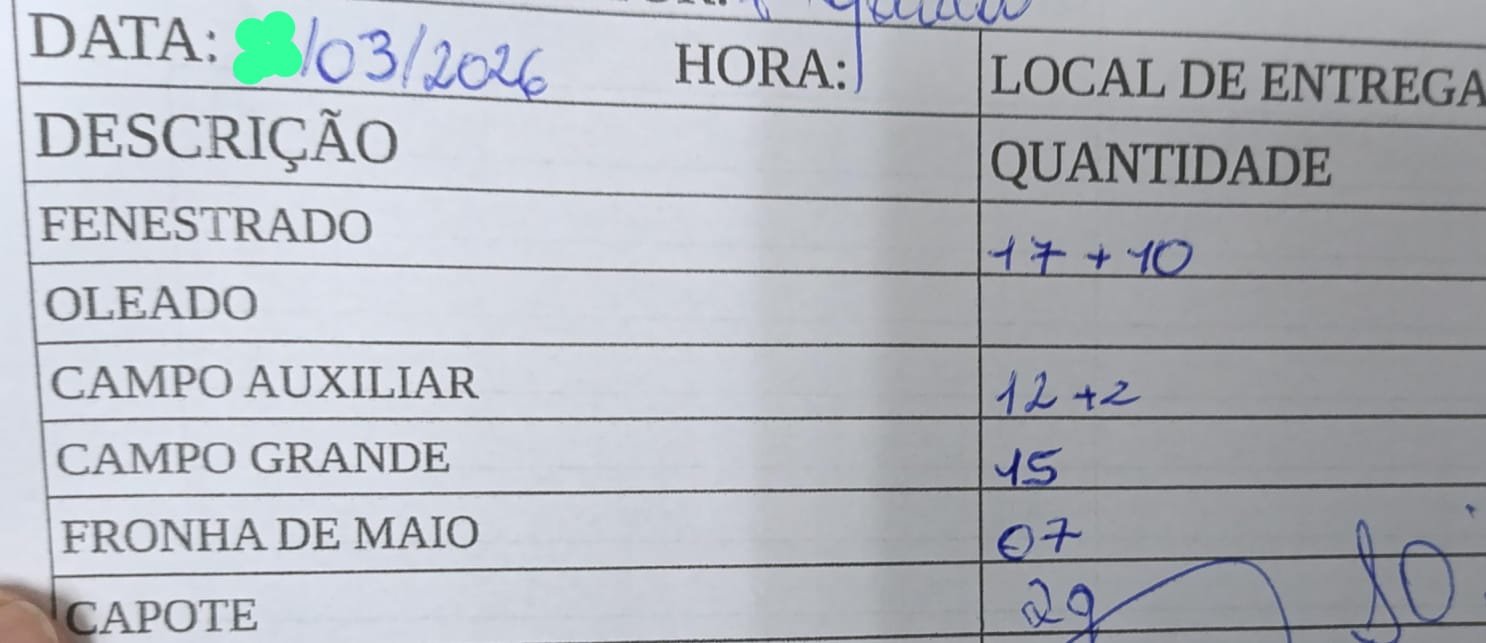 DATA: /03/2026 HORA: LOCAL DE ENTREGA
DESCRIÇÃO QUANTIDADE
FENESTRADO 17 + 10
OLEADO
CAMPO AUXILIAR 12 + 2
CAMPO GRANDE 15
FRONHA DE MAIO 07
CAPOTE 29